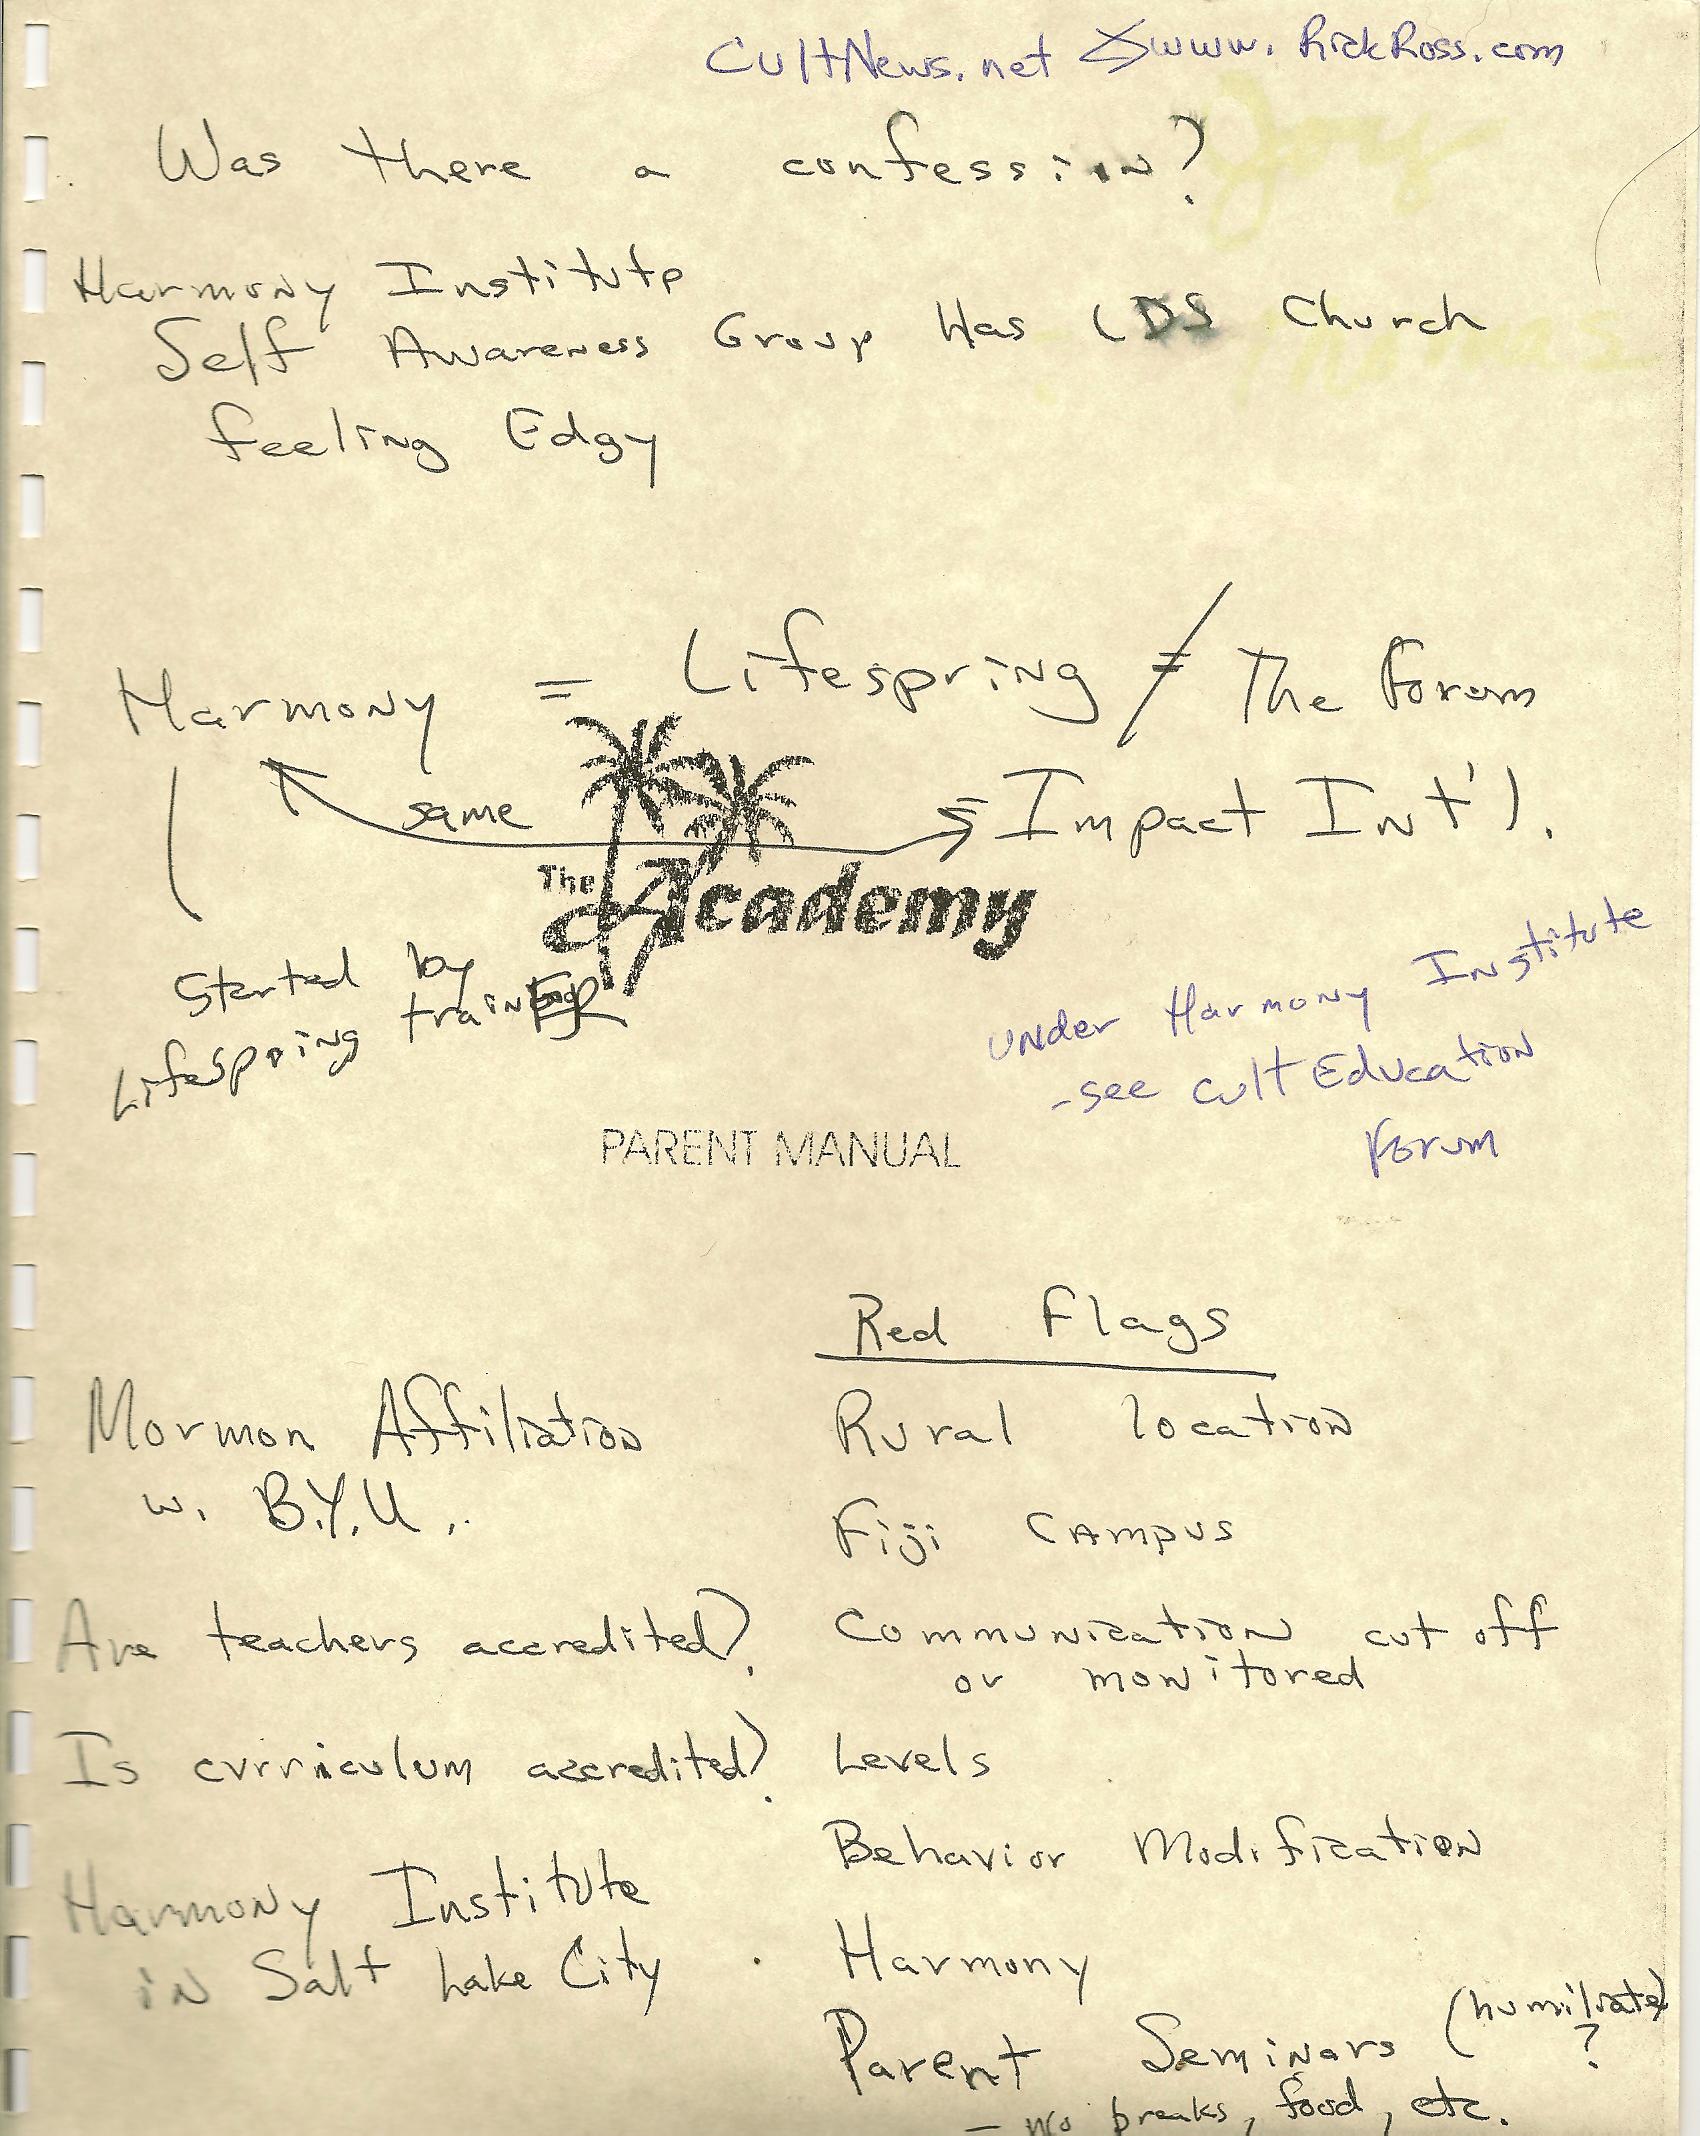 CultNews.net www.RickRoss.com
Was there a confession?
Harmony Institute
Self Awareness Group Has LDS Church
feeling Edgy
Harmony = Lifespring ≠ The Forum
same
Impact Int'l.
The Academy
Started by
Lifespring trainER
under Harmony Institute
- see cult Education
Forum
PARENT MANUAL
Mormon Affiliation
w. B.Y.U..
Are teachers accredited?
Is curriculum accredited?
Harmony Institute
in Salt Lake City
Red Flags
Rural location
Fiji Campus
Communication cut off
or monitored
Levels
Behavior Modification
Harmony
Parent Seminars (humiliate)
?
- no breaks, food, etc.